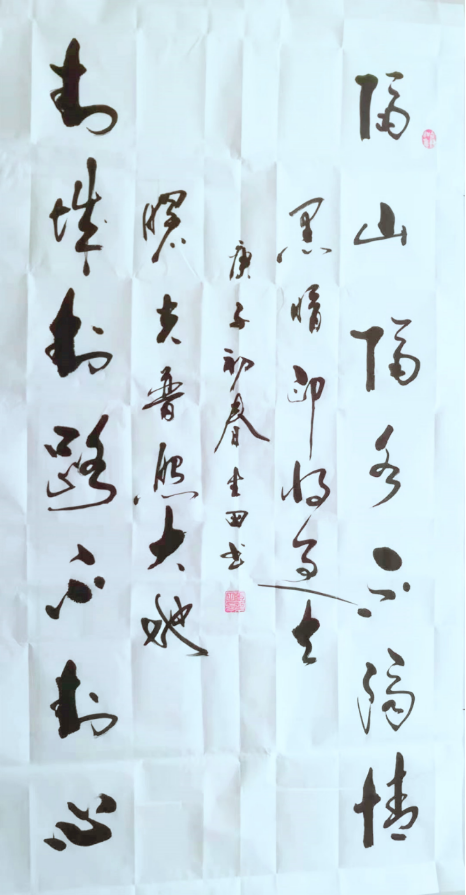 隔山隔水不隔情
封城封路不封心
黑暗即将过去
曙光普照大地
庚子初春生田书